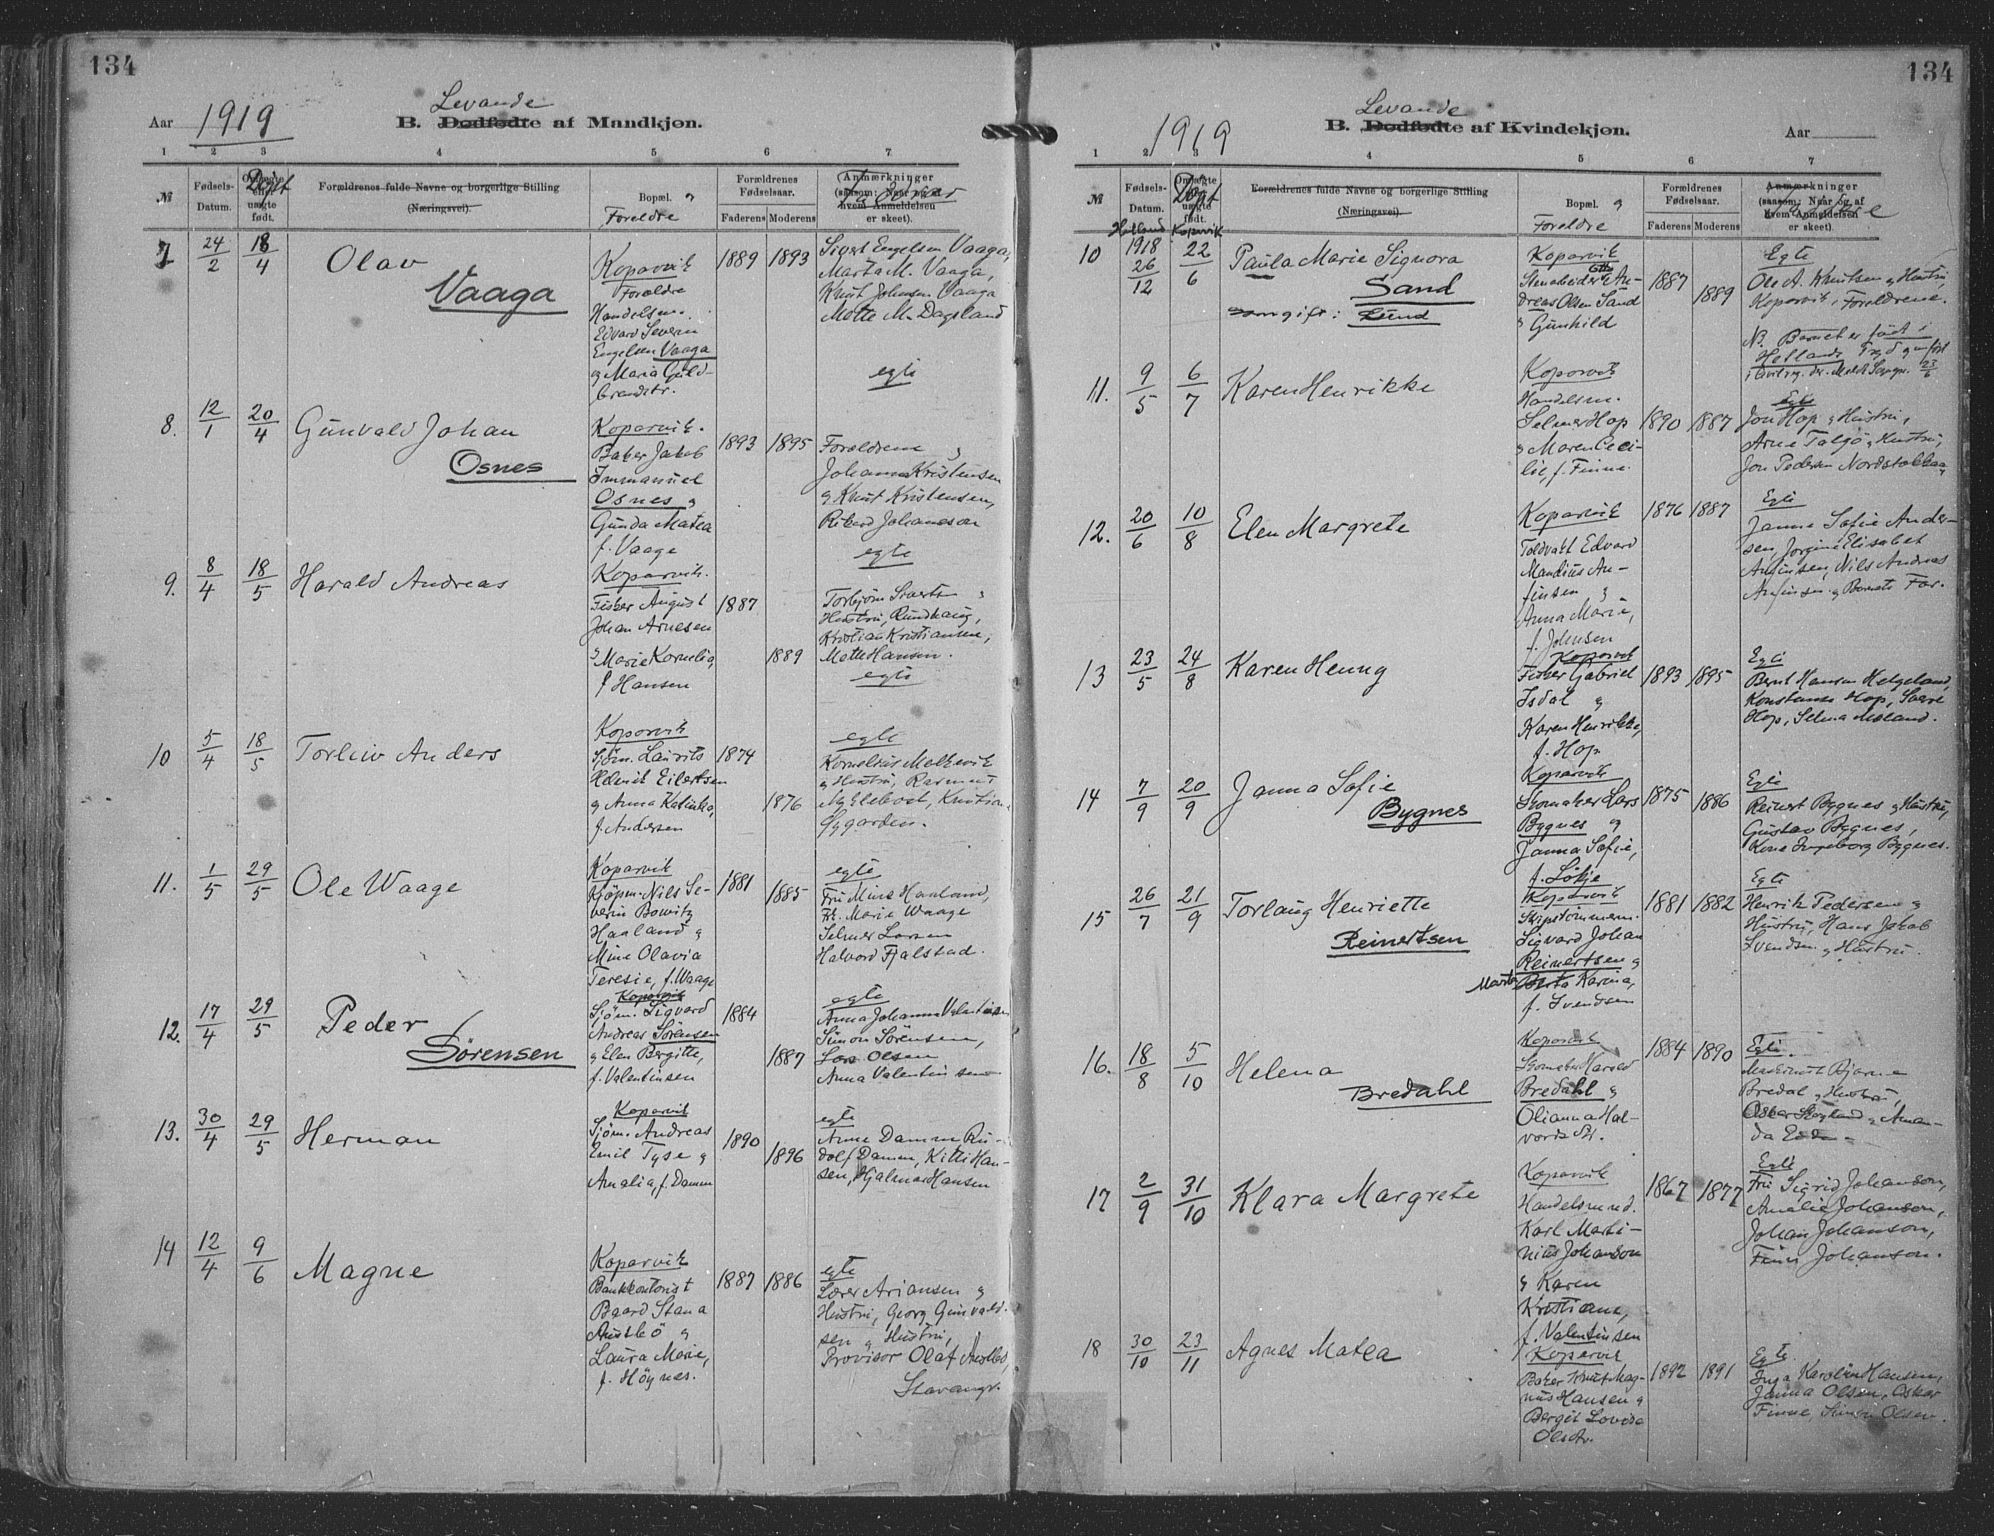 134
Aar 1919
Levande
B. Dødfødte af Mandkjøn.
1 2 3 4 5 6 7
№ Fødsels-Datum. Døpt Forældrenes fulde Navne og borgerlige Stilling (Næringsvei). Bopæl. og Foreldre Forældrenes Fødselsaar. Faderens Moderens Anmærkninger (saasom: Naar og af hvem Anmeldelsen er skeet). Fadrar
7 24/2 18/4 Olav Vaaga
Koparvik
Foreldre
Handelsm.
Edvard Severin
Engelsen Vaaga
og Maria Guld-
brandstr.
1889 1893
Sivert Engelsen Vaaga,
Marta M. Vaaga,
Knut Johnsen Vaaga
Mette M. Dagsland
egte
8. 12/1 20/4 Gunvald Johan Osnes
Koparvik.
Baker Jakob
Immanuel
Osnes og
Gunda Matea
f. Vaage
1893 1895
Foreldrene og
Johanna Kristensen
og Knut Kristensen,
Rikard Johanesen
egte
9. 8/4 18/5 Harald Andreas
Koparvik.
Fisker August
Johan Arnesen
og Marie Kornelia,
f Hansen
1887 1889
Torbjørn Sivertsen og
Hustru, Rundhaug,
Kristian Kristiansen,
Mette Hansen.
egte
10 5/4 18/5 Torleiv Anders
Koparvik
Sjøm. Laurits
Helmik Eilertsen
og Anna Katinka,
f. Andersen
1874 1876
egte
Kornelius Melkevik
og Hustru, Rasmus
Myklebost, Kristian
Øygarden.
11. 1/5 29/5 Ole Waage
Koparvik
Kjøpm. Nils Se-
verin Bowitz
Haaland og
Mine Olavia
Teresie, f. Waage
1881 1885
egte
Fru Mine Haaland,
Fr. Marie Waage
Selmer Larsen
Halvord Fjalstad.
12. 17/4 29/5 Peder Sörensen
Koparvik
Sjøm. Sigvard
Andreas Sörensen
og Elen Bergitte,
f. Valentinsen
1884 1887
egte
Anna Johanna Valentinsen
Simon Sörensen,
Lars Olsen
Anna Valentinsen
13. 30/4 29/5 Herman
Koparvik
Sjøm. Andreas
Emil Tyse og
Amalia, f. Damm
1890 1896
egte
Anne Damm Ru-
dolf Damm, Kitti Han-
sen, Hjalmar Hansen
14 12/4 9/6 Magne
Koparvik
Bankkontorist
Baard Stana
Austbö og
Laura Marie,
f. Höynes.
1887 1886
egte
Lærer Ariansen og
Hustru, Georg Gunvald-
sen og Hustru,
Provisor Olaf
Stavanger.
134
1919
Levande
B. Dødfødte af Kvindekjøn.
Aar
1 2 3 4 5 6 7
№ Fødsels-Datum. Døpt Forældrenes fulde Navne og borgerlige Stilling (Næringsvei). Bopæl. og Foreldre Forældrenes Fødselsaar. Faderens Moderens Anmærkninger (saasom: Naar og af hvem Anmeldelsen er skeet).
Hetland Kopervik
10 1918 26/12 22/6 Paula Marie Signora Sand
som gift: Lund
Koparvik
Stenarbeider An-
dreas Olsen Sand
og Gunhild
1887 1889
Egte
Ole A. Knutsen og Hustru,
Koparvik, Foreldrene.
NB. Barnet er födt i
Hetland
11. 9/5 6/7 Karen Henrikke
Koparvik
Handelsm.
Selmer Hop
og Maren Ceci-
lie, f. Finne.
1890 1887
Egte
Jon Hop og Hustru,
Arne Talgö og Hustru,
Jon Pedersen Nordstokka
12. 20/6 10/8 Elen Margrete
Koparvik
Toldvakt Edvard
Mandius An-
finsen og
Anna Marie,
f. Johnsen
1876 1887
Egte
Janna Sofie Ander-
sen, Jorgine Elisabet
Anfinsen, Nils Andreas
Anfinsen og Barnets Far.
13 23/5 24/8 Karen Henny
Koparvik
Fisker Gabriel
Isdal og
Karen Henrikke,
f. Hop
1893 1895
Egte
Bernt Hansen Helgeland,
Konstanse Hop, Sverre
Hop, Selma Moland.
14 7/9 20/9 Janna Sofie Bygnes
Koparvik
Skomaker Lars
Bygnes og
Janna Sofie,
f. Lökje
1875 1886
Egte
Reinert Bygnes og Hustru,
Gustav Bygnes,
Kone Ingeborg Bygnes.
15 26/7 21/9 Torlaug Henriette Reinertsen
Koparvik
Skipstömmerm.
Sigvard Johan
Reinertsen og
Marta Berta Karina,
f. Svendsen
1881 1882
Egte
Henrik Pedersen og
Hustru, Hans Jakob
Svendsen og Hustru.
16. 18/8 5/10 Helena Bredahl
Koparvik
Skomaker Harald
Bredahl og
Olianna Hal-
vordstr.
1884 1890
Egte.
Bjarne
Bredal og Hustru,
Oskar Skogland og Aman-
da
17 2/9 31/10 Klara Margrete
Koparvik
Handelsmand.
Karl Marti-
nius Johanson
og Karen
Kristiane,
f. Valentinsen
1867 1877
Egte
Fru Sigrid Johanson,
Amalie Johanson,
Johan Johanson,
Finn Johanson.
18 30/10 23/11 Agnes Matea
Koparvik
Baker Knut Mag-
nus Hansen og
Bergit Lovise
Olsdtr.
1892 1891
Egte
Inga Karoline Hansen,
Janna Olsen, Oskar
Finne, Simon Olsen.